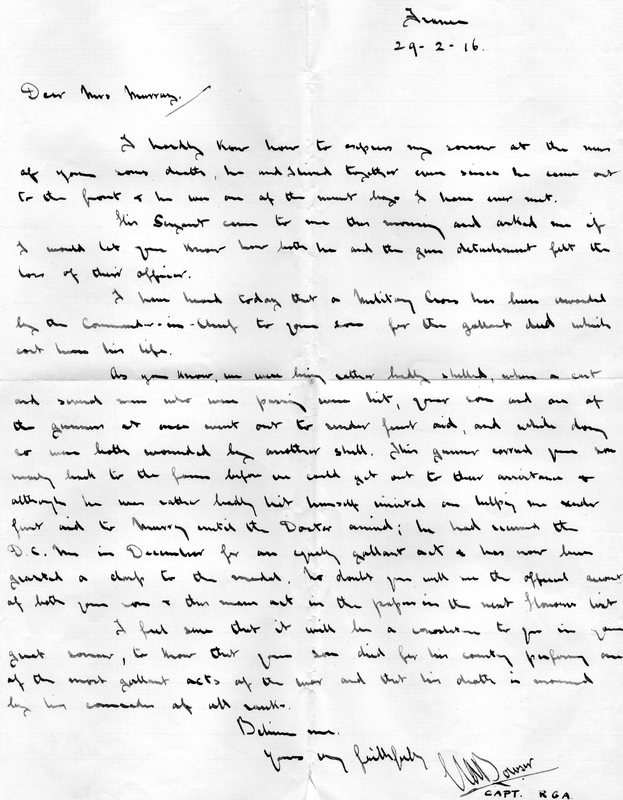 France
29-2-16.
Dear Mrs Murray,
I hardly know how to express my sorrow at the news
of your sons death, he and I lived together ever since he came out
to the front & he was one of the nicest boys I have ever met.
His Sergant came to me this morning and asked me if
I would let you know how both he and the guns detachment felt the
loss of their officer.
I have heard today that a Military Cross has been awarded
by the Commander-in-Chief to your son for the gallant deed which
cost him his life.
As you know, we were being rather badly shelled, when a cart
and several men who were passing were hit, your son and one of
the gunners at once went out to render first aid, and while doing
so were both wounded by another shell. This gunner carried your son
nearly back to the farm before we could get out to their assistance &
although he was rather badly hit himself insisted on helping me render
first aid to Murray until the Doctor arrived; he had received the
D.C.M. in December for an equally gallant act & has now been
granted a clasp to the medal. No doubt you will see the official account
of both your son & this mans act in the papers in the next Honours list
I feel sure that it will be a consolation to you in your
great sorrow, to know that your son died for his country performing one
of the most gallant acts of the war and that his death is mourned
by his comrades of all ranks.
Believe me.
Yours very faithfully
Bowser
CAPT. RGA.